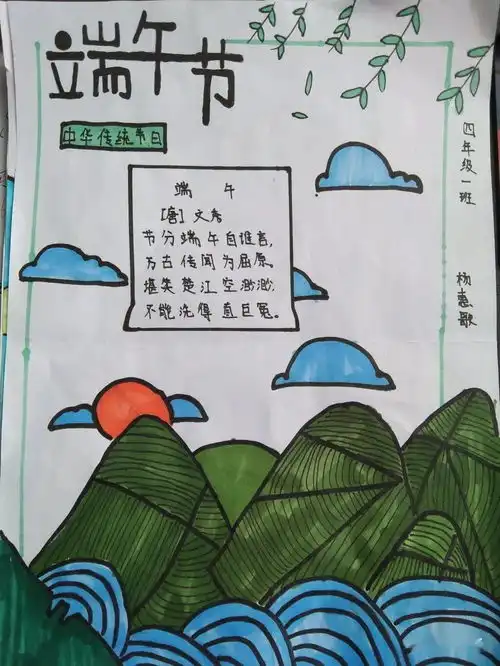 端午节
中华传统节日
端 午
[唐] 文秀
节分端午自谁言,
万古传闻为屈原。
堪笑楚江空渺渺,
不能洗得直巨冤。
四年级一班
杨惠歌